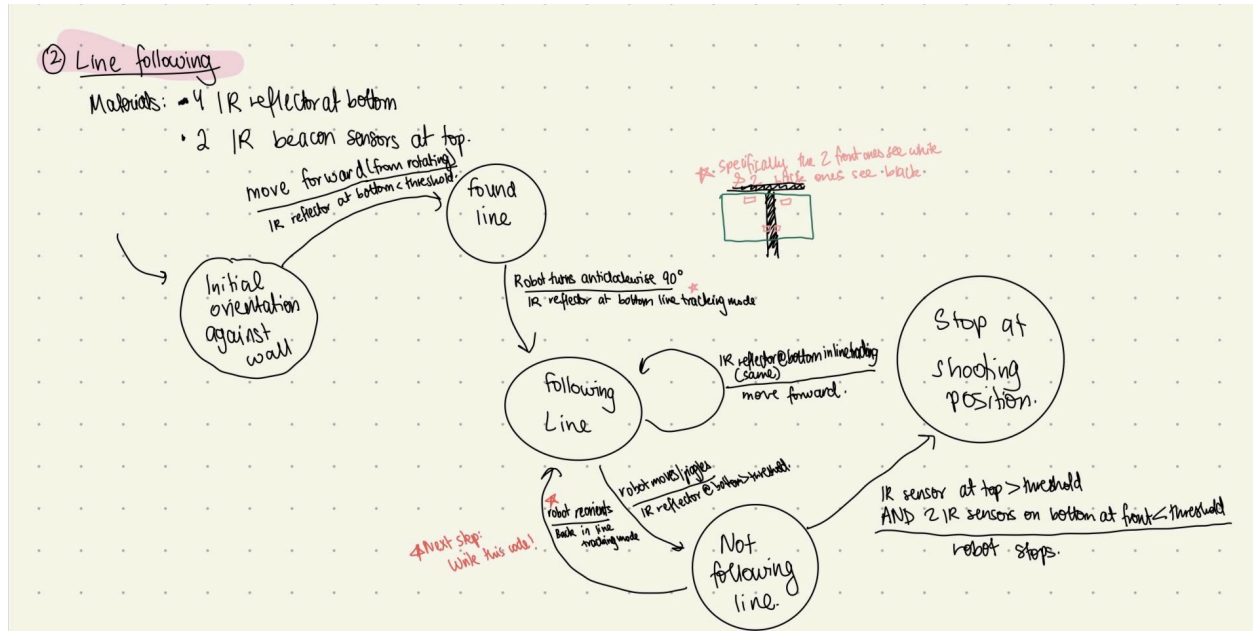 ② Line following
Materials: - 4 IR reflector at bottom
• 2 IR beacon sensors at top.
move forward (from rotating)
IR reflector at bottom < threshold.
found
line
Initial
orientation
against
wall
* specifically the 2 front ones see white
& 2 back ones see black.
Robot turns anticlockwise 90°
IR reflector at bottom line tracking mode
Following
Line
IR reflector @ bottom in line tracking
(same)
move forward.
Stop at
shooting
position.
robot moves/jiggles
IR reflector @ bottom > threshold.
robot reorients
Back in line
tracking mode
Next step:
Write this code!
Not
following
line.
IR sensor at top > threshold
AND 2 IR sensors on bottom at front < threshold
robot stops.